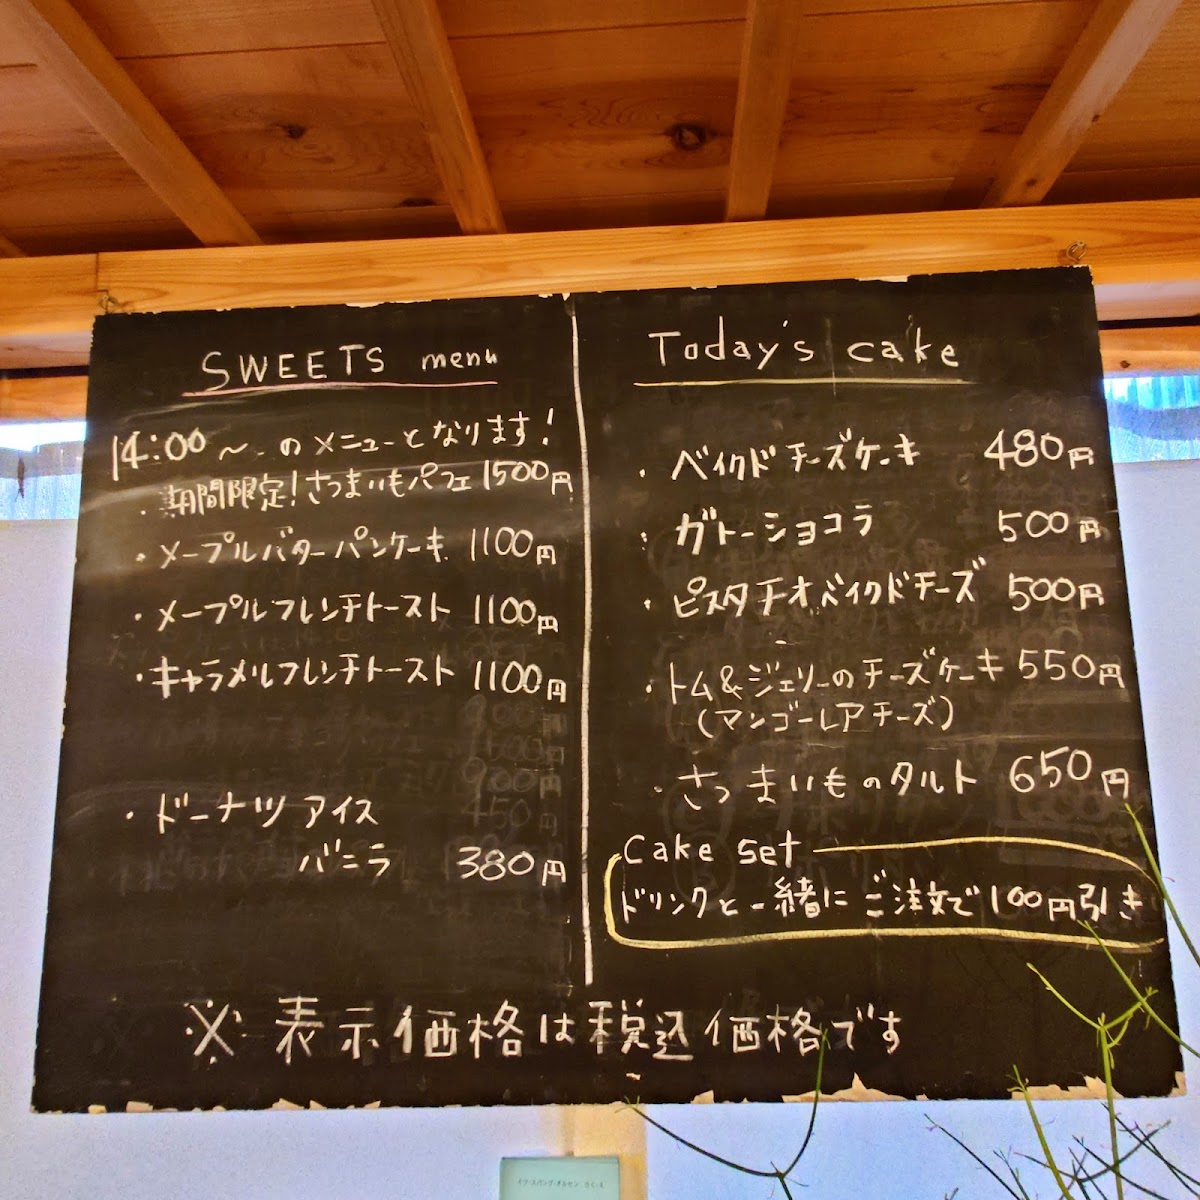 SWEETS menu
14:00〜のメニューとなります!
・期間限定!さつまいもパフェ 1500円
・メープルバターパンケーキ 1100円
・メープルフレンチトースト 1100円
・キャラメルフレンチトースト 1100円
・ドーナツアイス
バニラ 380円
Today's cake
・ベイクドチーズケーキ 480円
・ガトーショコラ 500円
・ピスタチオベイクドチーズ 500円
・トム&ジェリーのチーズケーキ 550円
(マンゴーレアチーズ)
・さつまいものタルト 650円
Cake set
ドリンクと一緒にご注文で100円引き
※表示価格は税込価格です